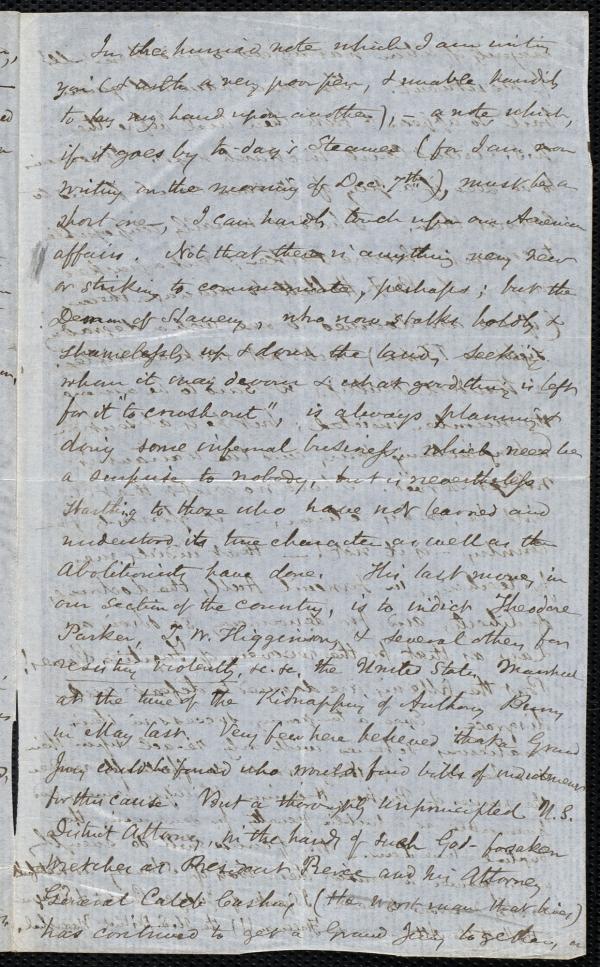 In the hurried note which I am writing
you (& with a very poor pen, & unable handily
to lay my hand upon another), – a note which,
if it goes by to-day's Steamer (for I am now
writing on the morning of Dec. 7th), must be a
short one, I can hardly touch upon our American
affairs. Not that there is anything very new
or striking to communicate, perhaps; but the
Demon of Slavery, who now stalks boldly &
shamelessly up & down the land, seeking
whom it may devour & what good thing is left
for it "to crush out", is always planning &
doing some infernal business, which need be
a surprise to nobody, but is nevertheless
startling to those who have not learned and
understood its true character as well as the
Abolitionists have done. His last move, in
our section of the country, is to indict Theodore
Parker, T. W. Higginson, & several others for
resisting violently, &c. &c. the United States Marshal
at the time of the Kidnapping of Anthony Burns
in May last. Very few here believed that a Grand
Jury could be found who would find bills of indictment
for this cause. But a thoroughly unprincipled U.S.
District Attorney in the hands of such God-forsaken
wretches as President Pierce and his Attorney
General Caleb Cushing (the worst man that lives)
has contrived to get a Grand Jury together,